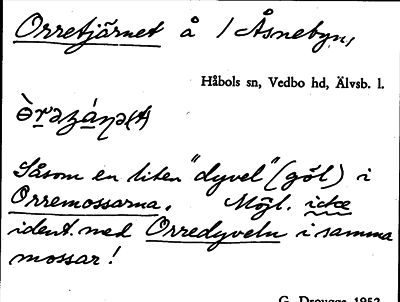 Orretjärnet å / Åsnebyn,
Håbols sn, Vedbo hd, Älvsb. l.
Såsom en liten "dyvel" (göl) i
Orremossarna. Möjl. icke
ident. med Orredyveln i samma
mossar!
G. Drougge 1952